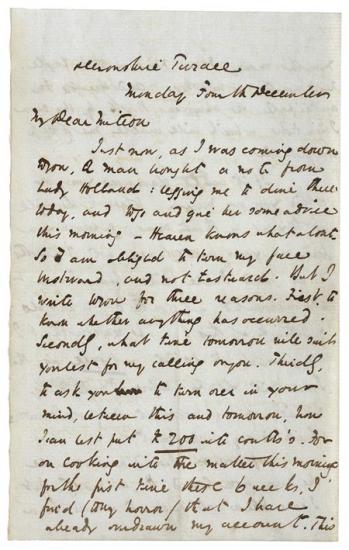 Devonshire Terrace
Monday Fourth December
My Dear Mitton
Just now, as I was coming down
Town, a man brought a note from
Lady Holland: begging me to dine there
today, and to go and give her some advice
this morning – Heaven knows what about.
So I am obliged to turn my face
Westward, and not Eastward. But I
write down for three reasons. First, to
know whether anything has occurred.
Secondly, what time tomorrow will suit
you best for my calling on you. Thirdly,
to ask you to turn over in your
mind, between this and tomorrow, how
I can best put £200 into Coutts's. For
on looking into the matter this morning
for the first time these 6 weeks, I
find (to my horror) that I have
already overdrawn my account. This